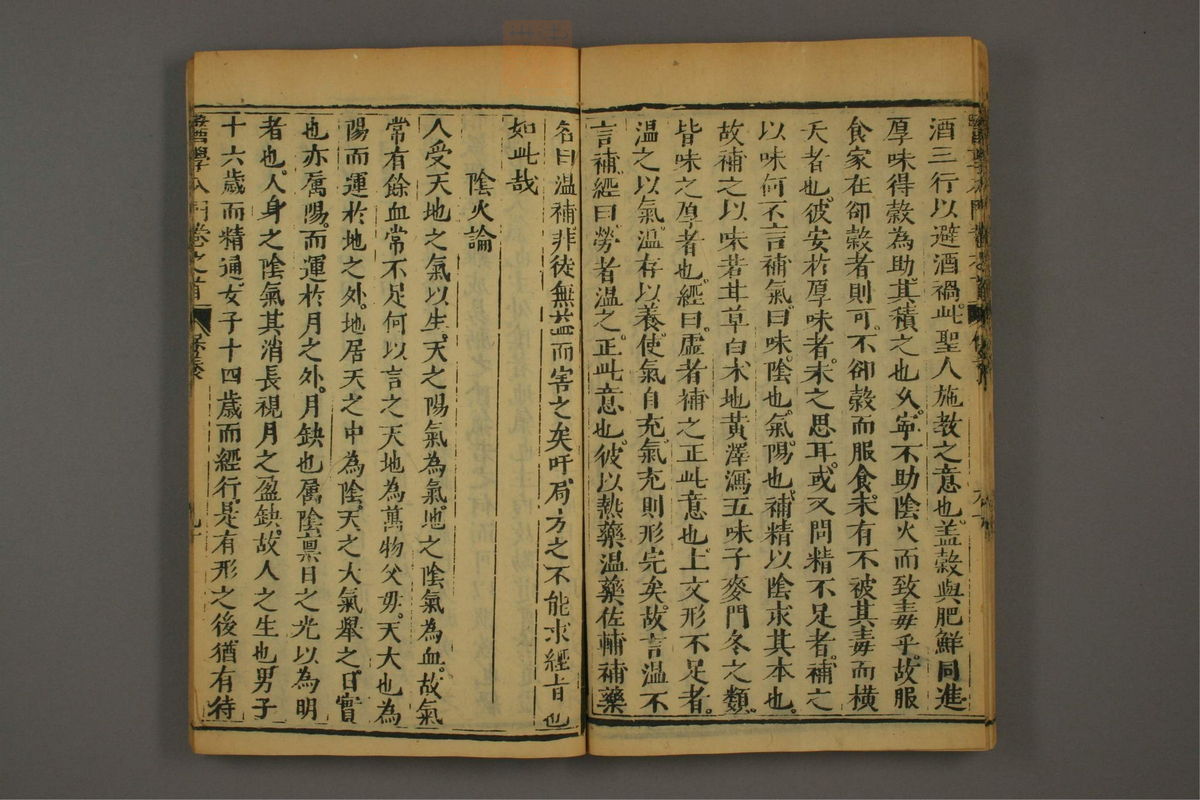 酒三行以避酒禍。此聖人施教之意也。盖穀與肥鮮同進
厚味得穀為助。其積之也久。寧不助陰火而致毒乎。故服
食家在卻穀者則可。不卻穀而服食。未有不被其毒而橫
夭者也。彼安於厚味者。未之思耳。或又問精不足者。補之
以味。何不言補氣。曰味。陰也。氣。陽也。補精以陰求其本也。
故補之以味。若甘草白朮地黃澤瀉五味子麥門冬之類。
皆味之厚者也。經曰。虛者補之。正此意也。上文形不足者。
温之以氣。温存以養。使氣自充。氣充則形完矣。故言温不
言補。經曰。勞者温之。正此意也。彼以熱藥温藥佐輔補藥
名曰温補。非徒無益。而害之矣。吁。局方之不能求經旨也
如此哉
陰火論
人受天地之氣以生。天之陽氣為氣。地之陰氣為血。故氣
常有餘。血常不足。何以言之。天地為萬物父母。天大也為
陽。而運於地之外。地居天之中為陰。天之大氣舉之。日實
也。亦屬陽。而運於月之外。月缺也。屬陰。稟日之光以為明
者也。人身之陰氣。其消長視月之盈缺。故人之生也。男子
十六歲而精通。女子十四歲而經行。是有形之後。猶有待
醫學入門卷之首